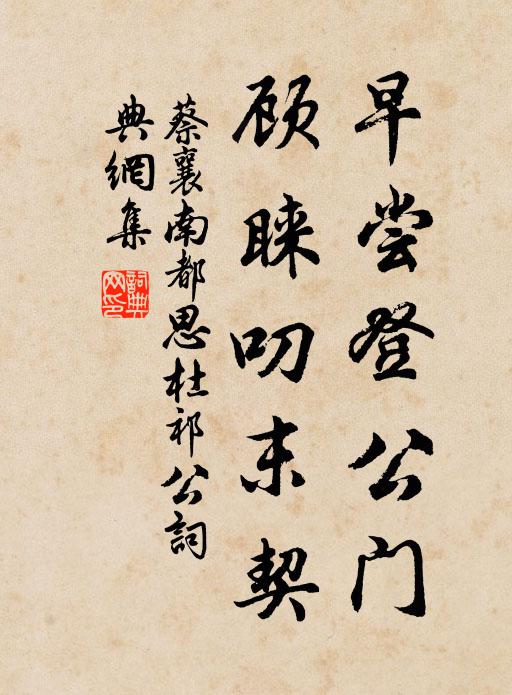 早尝登公门
顾睐叨末契
蔡襄南都思杜祁公詞
典網集
詞典网印